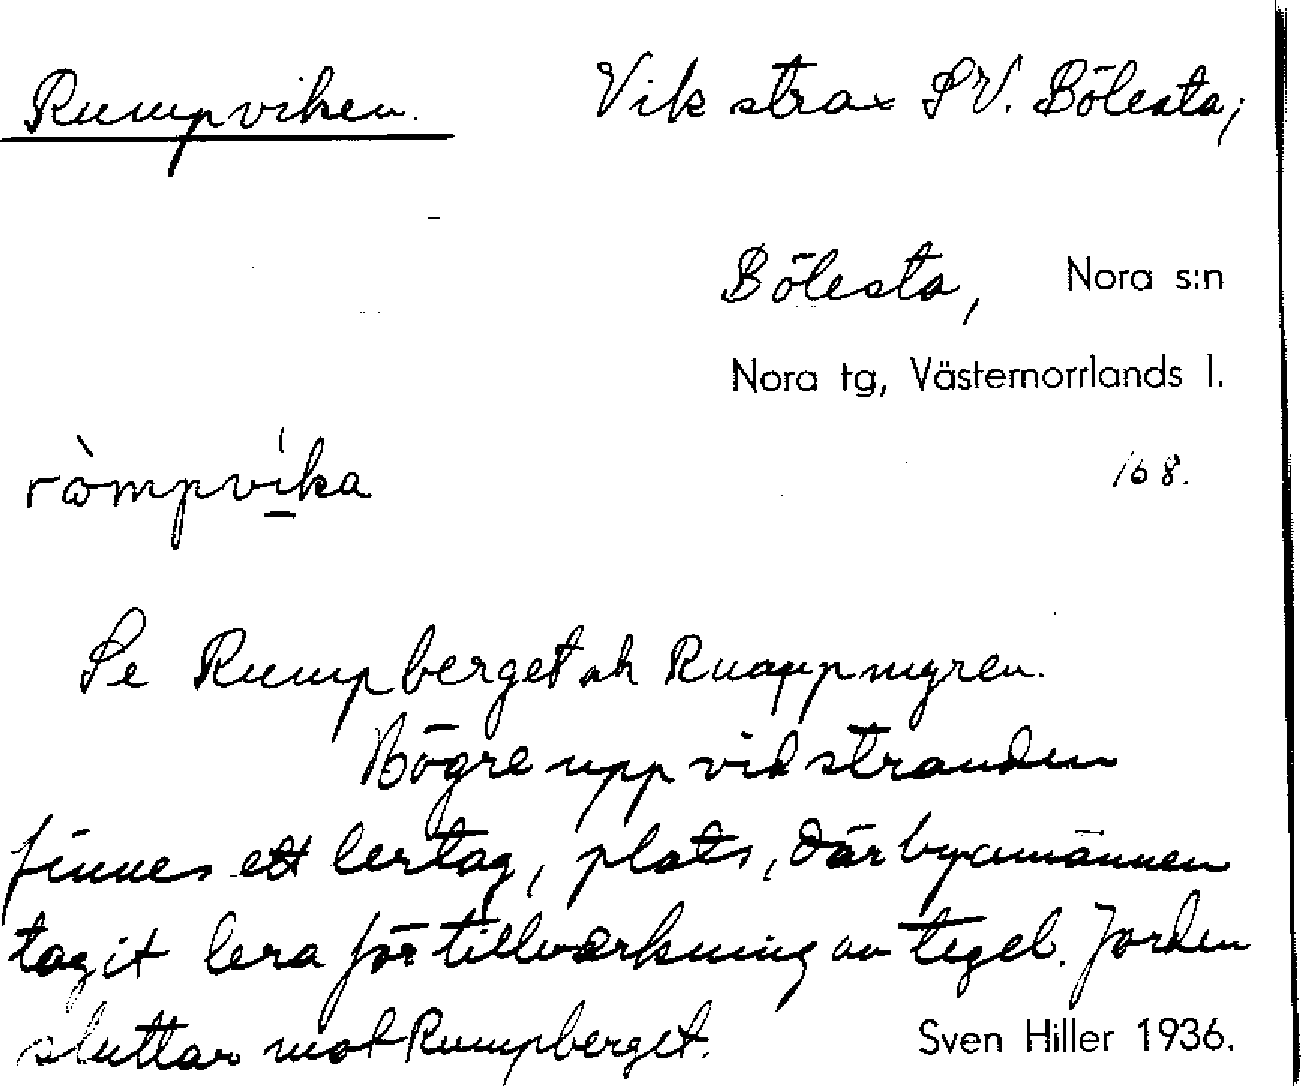 Rumpviken. Vik strax SV. Bölesta;
Bölesta, Nora s:n
Nora tg, Västernorrlands l.
ròmpvíka 168.
Se Rumpberget och Rumpmyren.
Högre upp vid stranden
finnes ett lertag, plats, där byamännen
tagit lera för tillverkning av tegel. Jorden
sluttar mot Rumpberget. Sven Hiller 1936.